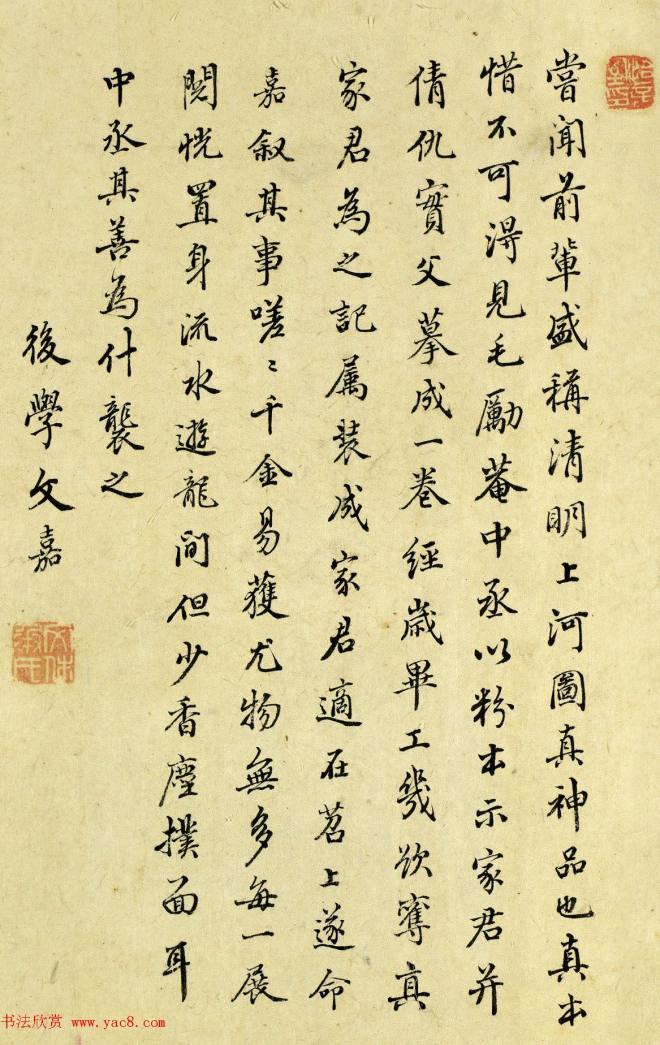 嘗聞前輩盛稱清明上河圖真神品也真本
惜不可得見毛勵菴中丞以粉本示家君并
倩仇實父摹成一卷經歲畢工幾欲奪真
家君為之記属装成家君適在苕上遂命
嘉叙其事嗟〻千金易獲尤物無多每一展
閱恍置身流水遊龍間但少香塵撲面耳
中丞其善為什襲之
後學文嘉
文休承印
书法欣赏 www.yac8.com